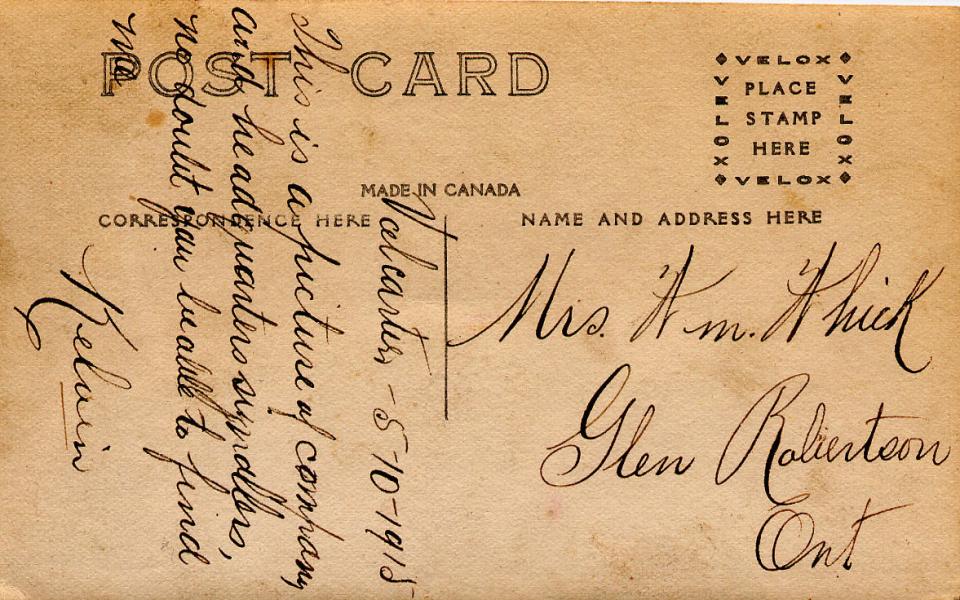 POST CARD
VELOX
VELOX
PLACE
STAMP
HERE
VELOX
VELOX
MADE IN CANADA
CORRESPONDENCE HERE
NAME AND ADDRESS HERE
Valcartier - 5-10-1915
This is a picture of company
and headquarters signallers,
no doubt you be able to find
me
Kelvin
Mrs. Wm. Whick
Glen Robertson
Ont